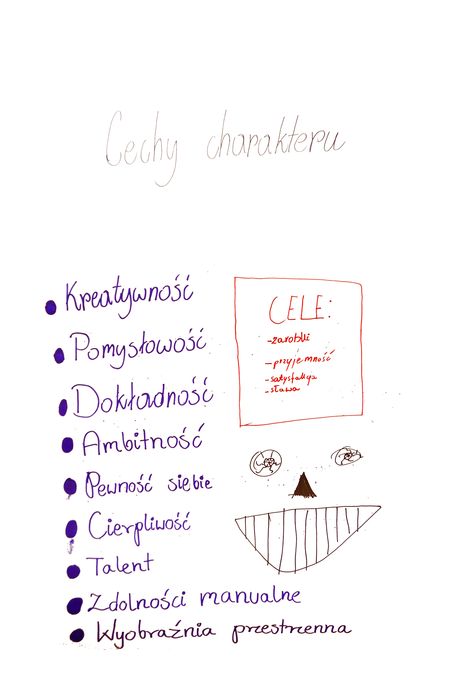 Cechy charakteru
Kreatywność
Pomysłowość
Dokładność
Ambitność
Pewność siebie
Cierpliwość
Talent
Zdolności manualne
Wyobraźnia przestrzenna
CELE:
-zarobki
-przyjemność
-satysfakcja
-sława